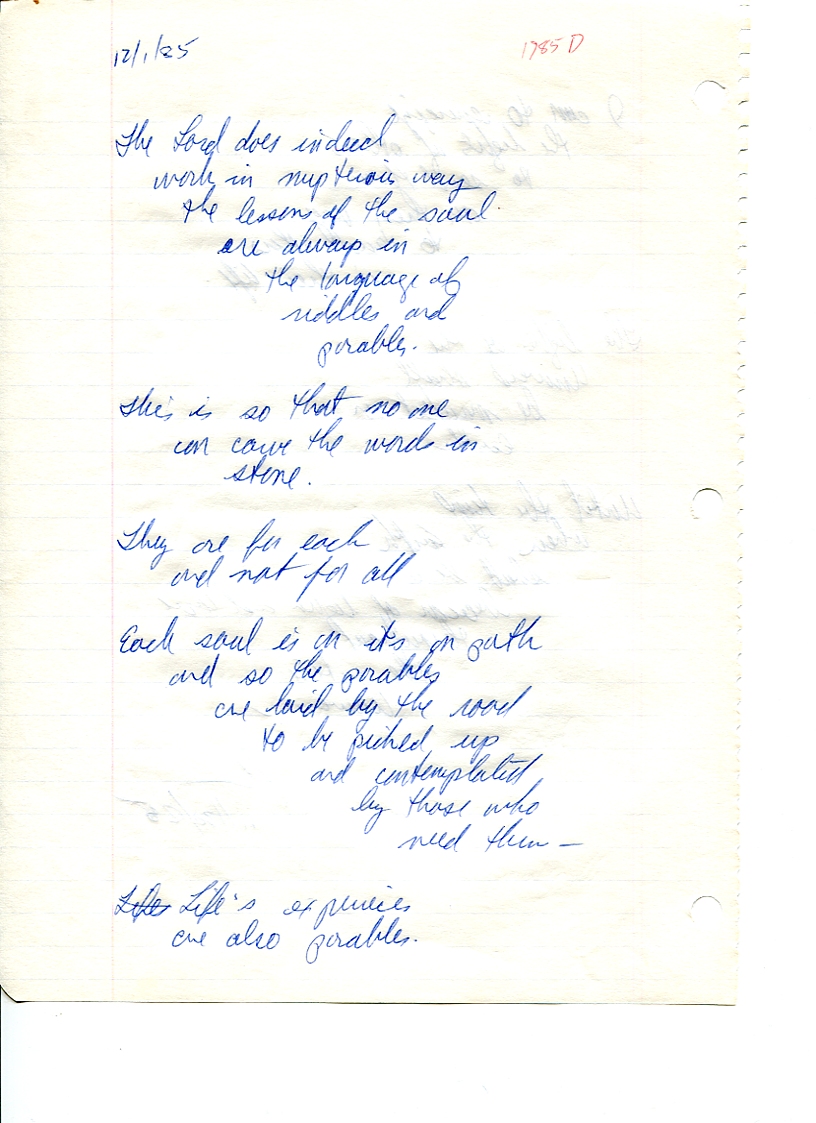 12/1/85
1785 D
The Lord does indeed
work in mysterious way
the lessons of the soul
are always in
the language of
riddles and
parables.
This is so that no one
can carve the words in
stone.
They are for each
and not for all
Each soul is on it's on path
and so the parables
are laid by the road
to be picked up
and contemplated
by those who
need them —
Life's experiences
are also parables.